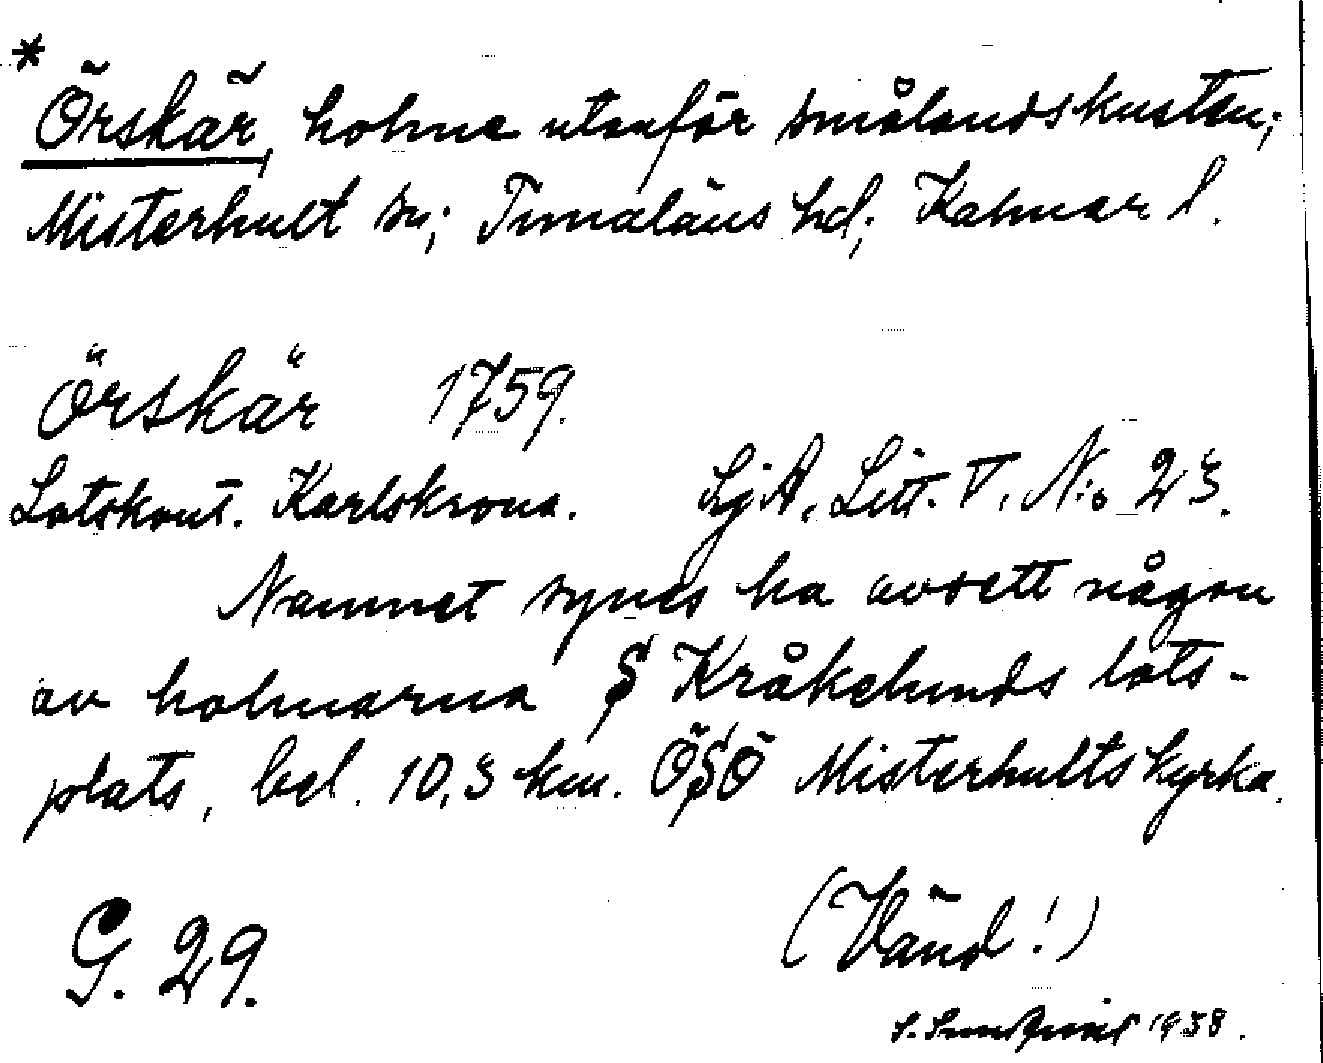 * Örskär, holme utanför smålandskusten;
Misterhult sn; Tunaläns hd; Kalmar l.
Örskär 1759.
Lotskont. Karlskrona. SjA, Litt. V, N:o 23.
Namnet synes ha avsett någon
av holmarna S Kråkelunds lots-
plats, bel. 10,3 km. ÖSÖ Misterhults kyrka.
(Vänd!)
G. 29.
1938.